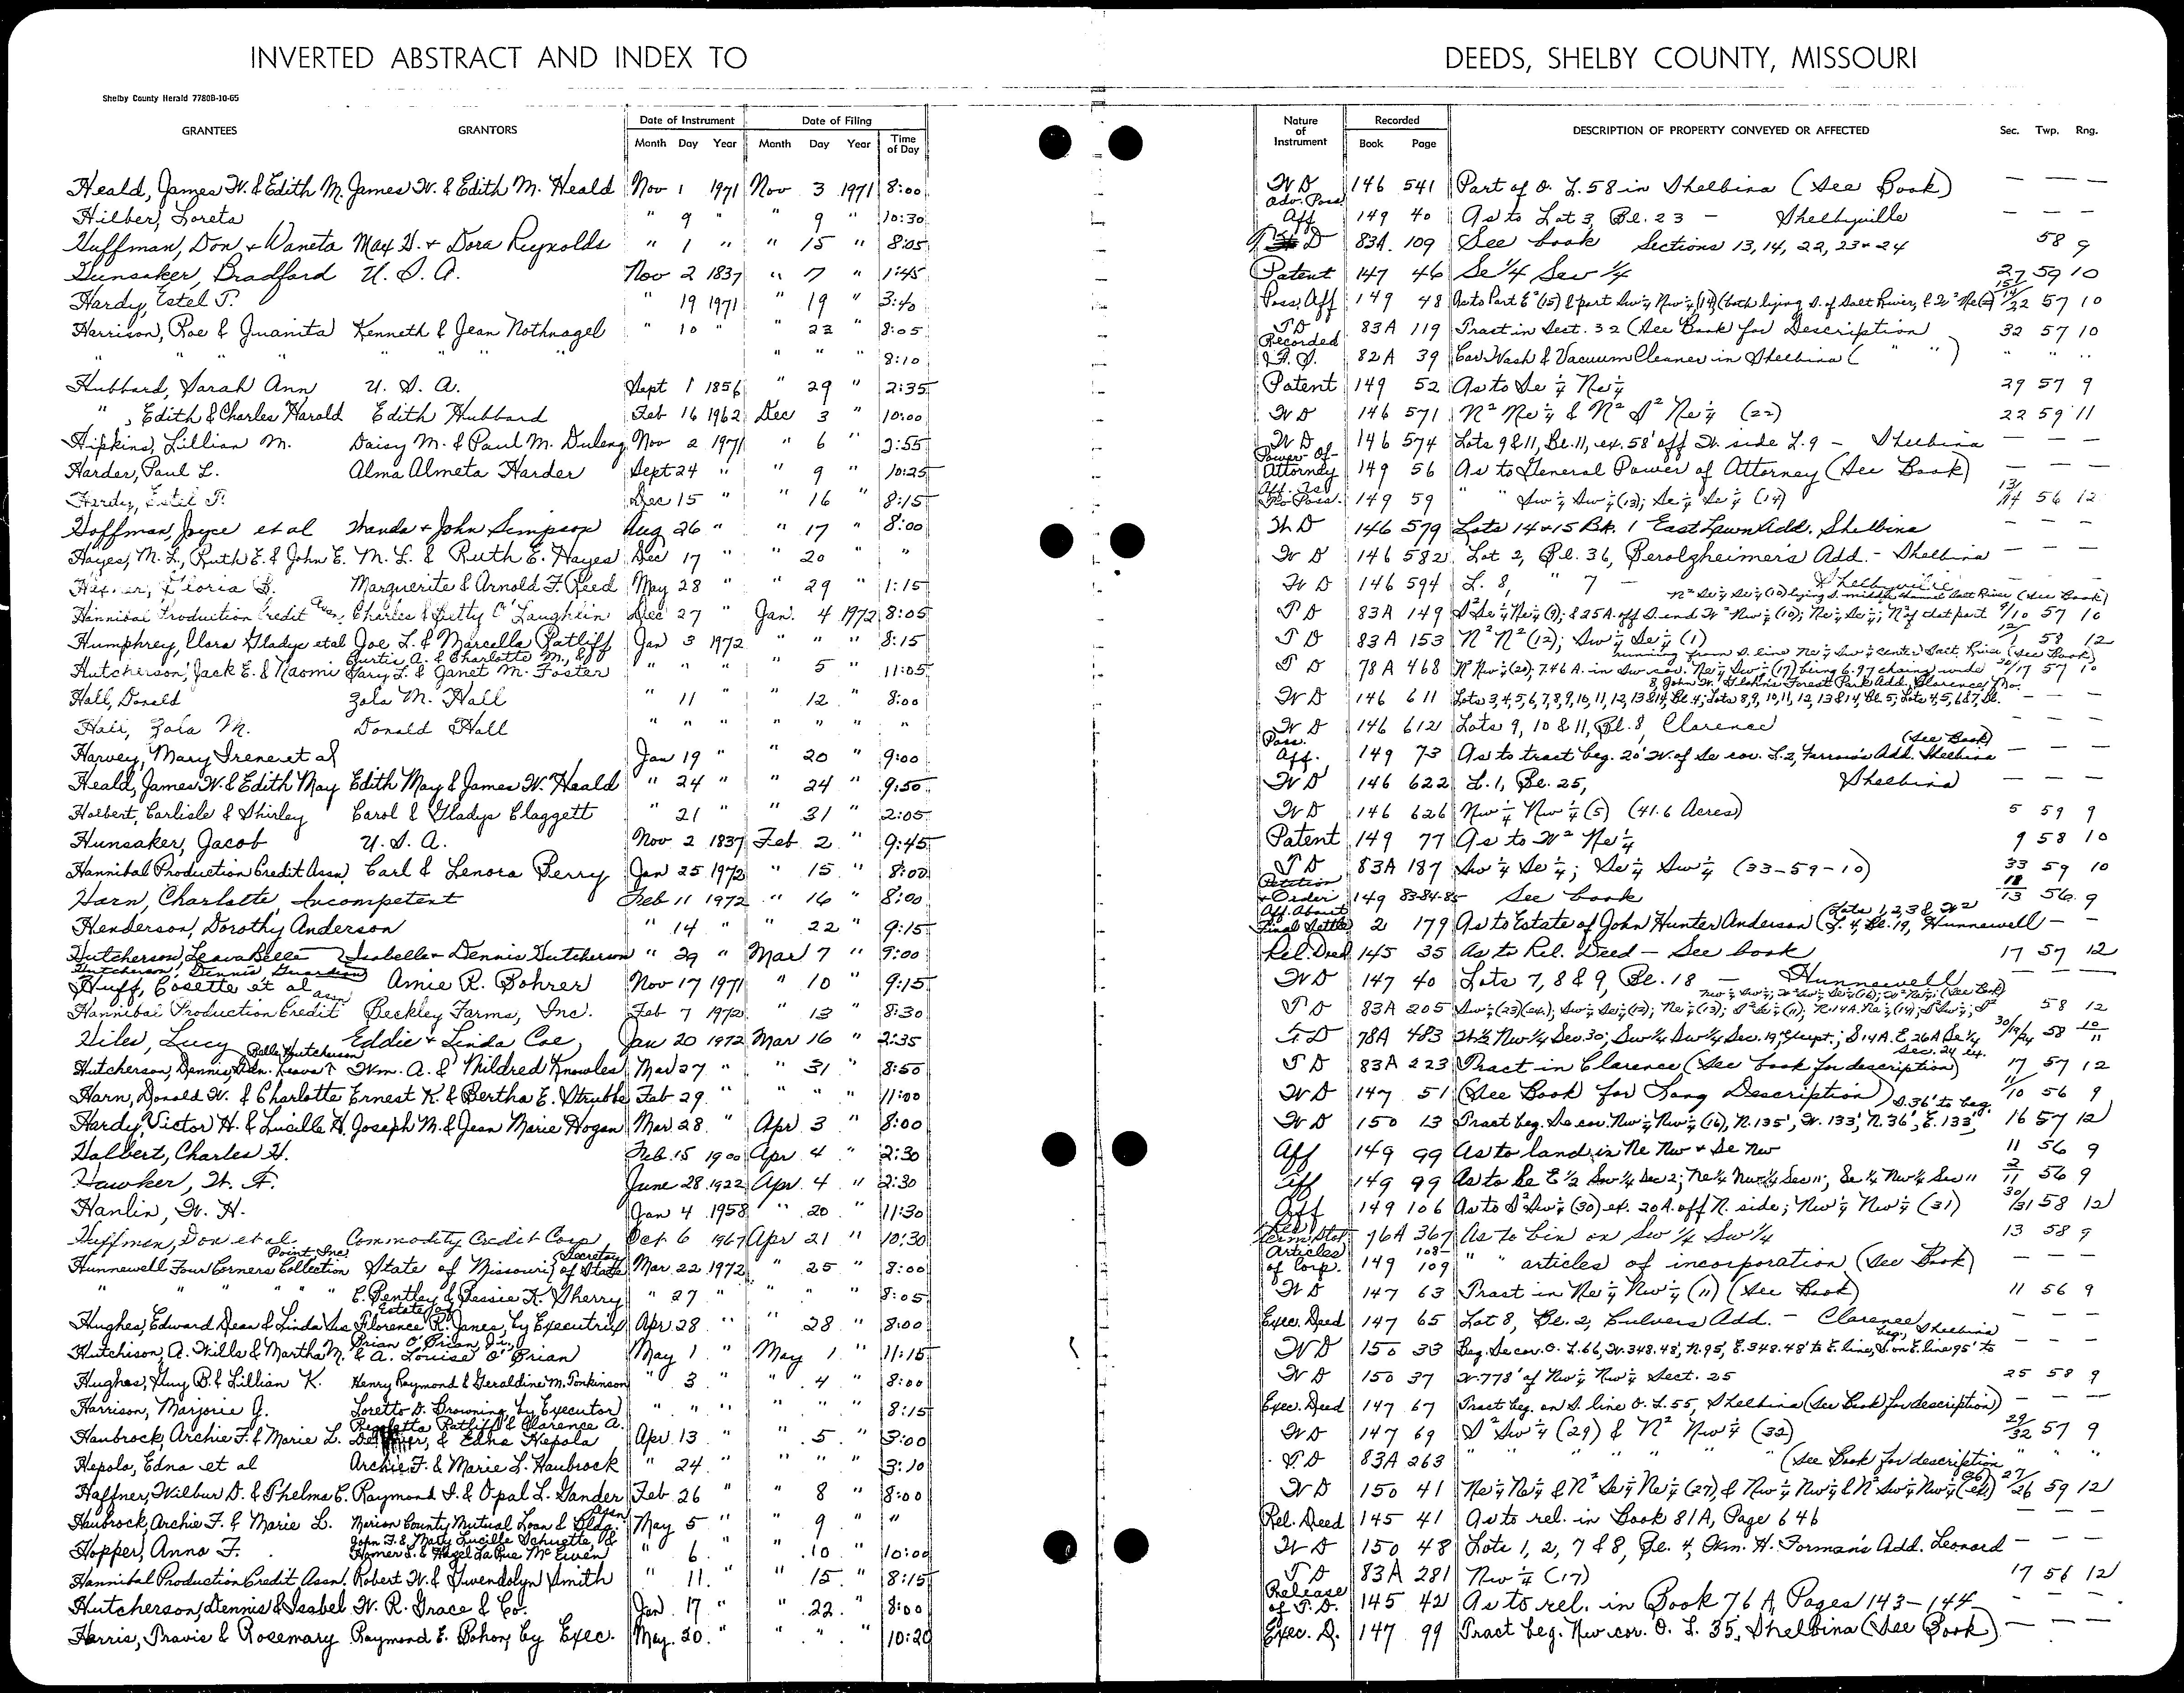 INVERTED ABSTRACT AND INDEX TO DEEDS, SHELBY COUNTY, MISSOURI
Shelby County Herald 7780B-10-65
GRANTEES GRANTORS Date of Instrument Month Day Year Date of Filing Month Day Year Time of Day Nature of Instrument Recorded Book Page DESCRIPTION OF PROPERTY CONVEYED OR AFFECTED Sec. Twp. Rng.
Heald, James W. & Edith M. James W. & Edith M. Heald Nov 1 1971 Nov 3 1971 8:00 W D 146 541 Part of O. L. 58 in Shelbina (See Book) — — —
Hilber, Loreta " 9 " " 9 " 10:30 Adv. Poss. Aff 149 40 As to Lot 3, Bl. 23 - Shelbyville — — —
Huffman, Don & Waneta Max H. & Dora Reynolds " 1 " " 15 " 8:05 D 83A 109 See book Sections 13, 14, 22, 23 & 24 58 9
Hunsaker, Bradford U. S. A. Nov 2 1837 " 17 " 1:45 Patent 147 46 Se 1/4 Sw 1/4 27 59 10
Hardy, Estel T. " 19 1971 " 19 " 3:40 Poss. Aff 149 48 As to Part E² (15) & part Sw 1/4 Nw 1/4 (14) (both lying S. of Salt River, & W² Ne 57 10
Harrison, Roe & Juanita Kenneth & Jean Nothnagel " 10 " " 22 " 8:05 T D 83A 119 Tract in Sect. 32 (See Book for Description) 32 57 10
" " " " " " " " " " 8:10 Recorded F. S. 82A 39 Car Wash & Vacuum Cleaner in Shelbina ( " " ) " " "
Hubbard, Sarah Ann U. S. A. Sept 1 1856 " 29 " 2:35 Patent 149 52 As to Se 1/4 Ne 1/4 29 57 9
" , Edith & Charles Harold Edith Hubbard Feb 16 1962 Dec 3 " 10:00 W D 146 571 N² Ne 1/4 & N² S² Ne 1/4 (22) 22 59 11
Hipkins, Lillian M. Daisy M. & Paul M. Duleng Nov 2 1971 " 6 " 2:55 W D 146 574 Lots 9 & 11, Bl. 11, ex. 58' off W. side L. 9 - Shelbina — — —
Harder, Paul L. Alma Almeta Harder Sept 24 " " 9 " 10:25 Power-Of-Attorney 149 56 As to General Power of Attorney (See Book) — — —
Hardy, Estel T. Dec 15 " " 16 " 8:15 149 59 " " Sw 1/4 Sw 1/4 (13); Se 1/4 Se 1/4 (14) 13/14 56 12
Hoffman, Joyce et al Wanda & John Simpson Aug 26 " " 17 " 8:00 W D 146 579 Lots 14 & 15 Bk. 1 East Lawn Add. Shelbina — — —
Hayes, M. L., Ruth E. & John E. M. L. & Ruth E. Hayes Dec 17 " " 20 " " W D 146 582 Lot 2, Bl. 36, Berolzheimer's Add. - Shelbina — — —
Gloria Marguerite & Arnold F. Reed May 28 " " 29 " 1:15 W D 146 594 L. 8, " 7 - Shelbyville — — —
Hannibal Production Credit Assn. Charles & Betty O'Laughlin Dec 27 " Jan. 4 1972 8:05 T D 83A 149 S² Se 1/4 Ne 1/4 (9); & 25 A. off S. end W² Nw 1/4 (10); Ne 1/4 Se 1/4; N² of that part N² Se 1/4 Se 1/4 (10) lying S. middle channel Salt River (See Book) 9/10 57 10
Humphrey, Clara Gladys et al Joe L. & Marcella Ratliff Jan 3 1972 " " " 8:15 T D 83A 153 N² N² (12); Sw 1/4 Se 1/4 (1) 12/1 58 12
Hutcherson, Jack E. & Naomi Curtis A. & Charlotte M., & Gary L. & Janet M. Foster " " " " 5 " 11:05 T D 78A 468 N² Nw 1/4 (20); 7.46 A. in Sw cor. Ne 1/4 Sw 1/4 (17) being 6.97 chains wide running from S. line Ne 1/4 Sw 1/4 center Salt River (See Book) 20/17 57 10
Hall, Donald Zola M. Hall " 11 " " 12 " 8:00 W D 146 611 Lots 3, 4, 5, 6, 7, 8, 9, 10, 11, 12, 13 & 14, Bl. 4; Lots 8, 9, 10, 11, 12, 13 & 14, Bl. 5; Lots 4, 5, 6 & 7, Bl. 8, John W. Forest Park Add. Clarence, Mo. — — —
Hall, Zola M. Donald Hall " " " " " " " W D 146 612 Lots 9, 10 & 11, Bl. 8, Clarence — — —
Harvey, Mary Irene et al Jan 19 " " 20 " 9:00 Poss. Aff. 149 73 As to tract beg. 20' W. of Se cor. L. 2, Add. Shelbina (See Book) — — —
Heald, James W. & Edith May Edith May & James W. Heald " 24 " " 24 " 9:50 W D 146 622 L. 1, Bl. 25, Shelbina — — —
Holbert, Carlisle & Shirley Carol & Gladys Claggett " 21 " 31 " 2:05 W D 146 626 Nw 1/4 Nw 1/4 (5) (41.6 Acres) 5 59 9
Hunsaker, Jacob U. S. A. Nov 2 1837 Feb 2 " 9:45 Patent 149 77 As to W² Ne 1/4 9 58 10
Hannibal Production Credit Assn. Carl & Lenora Perry Jan 25 1972 " 15 " 8:00 T D 83A 187 Sw 1/4 Se 1/4; Se 1/4 Sw 1/4 (33-59-10) 33 59 10
Harn, Charlotte, Incompetent Feb 11 1972 " 16 " 8:00 Petition & Order 149 83-84-85 See book 18/13 56 9
Henderson, Dorothy Anderson " 14 " " 22 " 9:15 Aff. About Final Settle 2 179 As to Estate of John Hunter Anderson (Lots 1, 2, 3 & W 2 L. 4, Bl. 19, Hunnewell — —
Hutcherson, Leava Belle Hutcherson, Dennis Guardian Isabelle & Dennis Hutcherson " 29 " Mar 7 " 9:00 Rel. Deed 145 35 As to Rel. Deed - See book 17 57 12
Huff, Cosette et al Amie R. Bohrer Nov 17 1971 " 10 " 9:15 W D 147 40 Lots 7, 8 & 9, Bl. 18 - Hunnewell — — —
Hannibal Production Credit Assn Beckley Farms, Inc. Feb 7 1972 " 13 " 8:30 T D 83A 205 (See Book) 58 12
Hiles, Lucy Eddie & Linda Coe Jan 20 1972 Mar 16 " 2:35 T. D 78A 483 W 1/2 Nw 1/4 Sec. 30; Sw 1/4 Sw 1/4 Sec. 19; Except.; S 14 A. E. 26 A Se 1/4 Sec. 24 ex. 30/19/24 58 10/11
Hutcherson, Dennis, Gdn. Leava Belle Hutcherson Wm. A. & Mildred Knowles Mar 27 " " 31 " 8:50 T D 83A 223 Tract in Clarence (See book for description) 17 57 12
Harn, Donald W. & Charlotte Ernest K. & Bertha E. Strubbe Feb 29 " " " " 11:00 W D 147 51 (See Book for Long Description) 11/10 56 9
Hardy, Victor H. & Lucille H. Joseph M. & Jean Marie Hogan Mar 28 " Apr 3 " 8:00 W D 150 13 Tract beg. Se cor. Nw 1/4 Nw 1/4 (16), N. 135', W. 133', N. 36', E. 133', S. 36' to beg. 16 57 12
Halbert, Charles H. Feb. 15 1900 Apr. 4 " 2:30 Aff 149 99 As to land in Ne Nw & Se Nw 11 56 9
Hawker, W. F. June 28 1922 Apr. 4 " 2:30 Aff 149 99 As to Se E 1/2 Sw 1/4 Sec 2; Ne 1/4 Nw 1/4 Sec 11; Se 1/4 Nw 1/4 Sec 11 2/11 56 9
Hanlin, W. H. Jan 4 1958 " 20 " 11:30 Aff 149 106 As to S² Sw 1/4 (30) ex. 20 A. off N. side; Nw 1/4 Nw 1/4 (31) 30/31 58 12
Huffman, Don et al. Commodity Credit Corp Oct 6 1967 Apr 21 " 10:30 76A 367 As to bin on Sw 1/4 Sw 1/4 13 58 9
Hunnewell Four Corners Collection Point, Inc. State of Missouri (Secretary of State) Mar 22 1972 " 25 " 8:00 Articles of Corp. 149 108-109 " " articles of incorporation (See Book) — — —
" " " " " C. Bentley & Bessie K. Sherry " 27 " " " " 8:05 W D 147 63 Tract in Ne 1/4 Nw 1/4 (11) (See Book) 11 56 9
Hughes, Edward Dean & Linda Sue Florence R. Janes, Estate of, by Executrix Apr 28 " " 28 " 8:00 Exec. Deed 147 65 Lot 8, Bl. 2, Culvers Add. - Clarence — — —
Hutchison, A. Wills & Martha M. Brian O'Brian, Jr., & A. Louise O'Brian May 1 " May 1 " 11:15 W D 150 33 Beg. Se cor. O. L. 66, W. 348.48', N. 95', E. 348.48' to E. line, S. on E. line 95' to beg. Shelbina — — —
Hughes, Guy B. & Lillian K. Henry Raymond & Geraldine M. Tonkinson " 3 " " 4 " 8:00 W D 150 37 W. 778' of Nw 1/4 Nw 1/4 Sect. 25 25 58 9
Harrison, Marjorie G. Loretto D. Browning by Executor " " " " " " 8:15 Exec. Deed 147 67 Tract beg. on S. line O. L. 55, Shelbina (See Book for description) — — —
Haubrock, Archie F. & Marie L. Ratliff & Clarence A. & Edna Hepola Apr. 13 " " 5 " 3:00 W D 147 69 S² Sw 1/4 (29) & N² Nw 1/4 (32) 29/32 57 9
Hepola, Edna et al Archie F. & Marie L. Haubrock " 24 " " " " 3:10 T D 83A 263 " " " " " " (See Book for description " " "
Haffner, Wilbur D. & Thelma C. Raymond I. & Opal L. Gander Feb 26 " " 8 " 8:00 W D 150 41 Ne 1/4 Ne 1/4 & N² Se 1/4 Ne 1/4 (27), & Nw 1/4 Nw 1/4 & N² Sw 1/4 Nw 1/4 (26) 27/26 59 12
Haubrock, Archie F. & Marie L. Marion County Mutual Loan & Bldg. Assn May 5 " " 9 " " Rel. Deed 145 41 As to rel. in Book 81A, Page 646 — — —
Hopper, Anna F. John F. & Mary Lucille Schuette, & Homer S. & Hazel LaRue McEwen " 6 " " 10 " 10:00 W D 150 48 Lots 1, 2, 7 & 8, Bl. 4, Wm. H. Forman's Add. Leonard — — —
Hannibal Production Credit Assn. Robert W. & Gwendolyn Smith " 11 " " 15 " 8:15 T D 83A 281 Nw 1/4 (17) 17 56 12
Hutcherson, Dennis & Isabel W. R. Grace & Co. Jan 17 " " 22 " 8:00 Release of T. D. 145 42 As to rel. in Book 76A, Pages 143-144 — — —
Harris, Travis & Rosemary Raymond E. Bohon, by Exec. May 20 " " " " 10:20 Exec. D. 147 99 Tract beg. Nw cor. O. L. 35, Shelbina (See Book) — — —